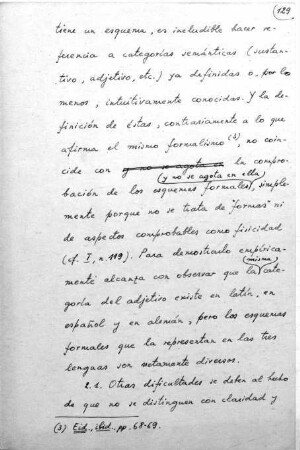 129
tiene un esquema, es ineludible hacer re-
ferencia a categorías semánticas (sustan-
tivo, adjetivo, etc.) ya definidas o, por lo
menos, intuitivamente conocidas. Y la de-
finición de éstas, contrariamente a lo que
afirma el mismo formalismo (3), no coin-
cide con y no se agota en la compro-
(y no se agota en ella)
bación de los esquemas formales, simple-
mente porque no se trata de "formas" ni
de aspectos comprobables como fisicidad
(cf. I, n. 119). Para demostrarlo empírica-
(misma)
mente alcanza con observar que la cate-
goría del adjetivo existe en latín, en
español y en alemán, pero los esquemas
formales que la representan en las tres
lenguas son netamente diversos.
2.1. Otras dificultades se deben al hecho
de que no se distinguen con claridad y
(3) Eid., ibid., pp. 68-69.